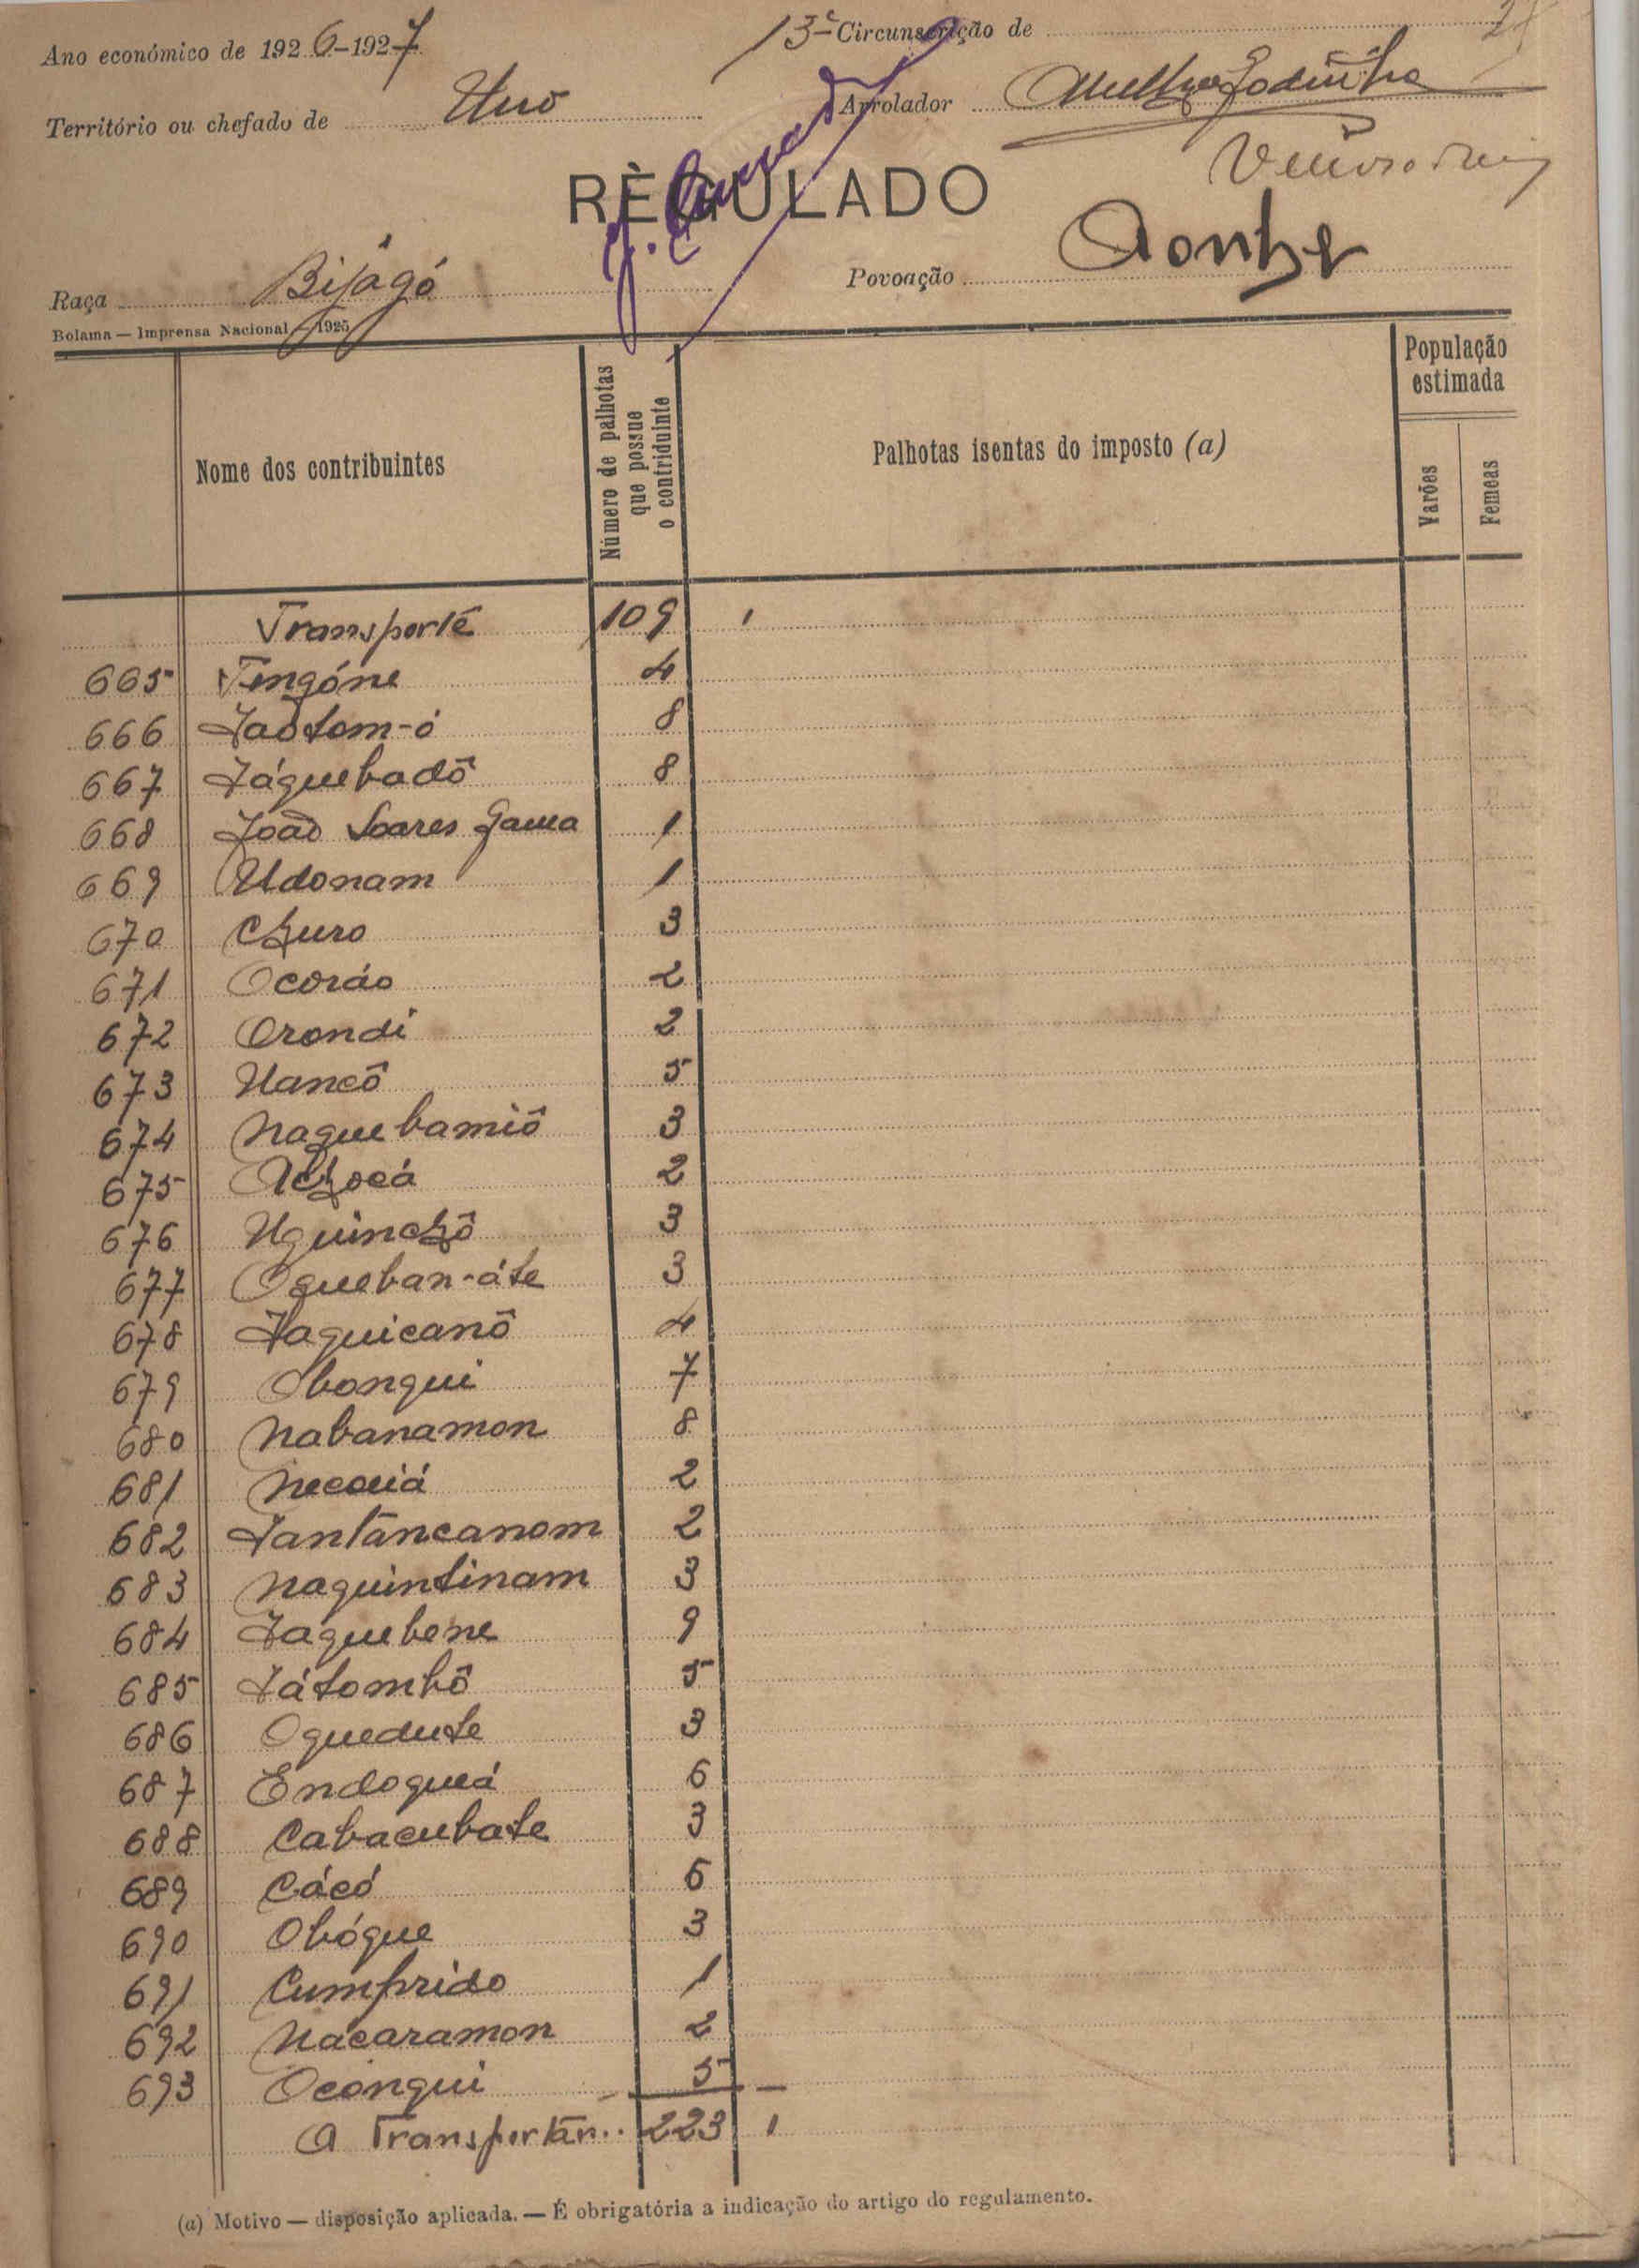 Ano económico de 1926-1927
13ª Circunscrição de
Território ou chefado de Uno
Arrolador
RÈGULADO
Raça Bijagó
Povoação
Bolama — Imprensa Nacional — 1925
Nome dos contribuintes
Número de palhotas que possue o contriduinte
Palhotas isentas do imposto (a)
População estimada
Varões
Femeas
Transporte 109 1
665 Tengóne 4
666 Jaotom-ó 8
667 Jáquebadô 8
668 João Soares Gama 1
669 Udonam 1
670 Churo 3
671 Ocoráo 2
672 Orondi 2
673 Uancô 5
674 Naquebamiô 3
675 Achocá 2
676 Uquinchô 3
677 Oqueban-áte 3
678 Jaquicanô 4
679 Obonqui 7
680 Nabanamon 8
681 2
682 Jantancanom 2
683 Naquintinam 3
684 Jaquebene 9
685 Játombô 5
686 Oquedute 3
687 Endoqueá 6
688 Cabacubate 3
689 Cácó 6
690 Obógue 3
691 Cumprido 1
692 Nacaramon 2
693 Oconqui 5
A Transportar.. 223 1
(a) Motivo — disposição aplicada. — É obrigatória a indicação do artigo do regulamento.